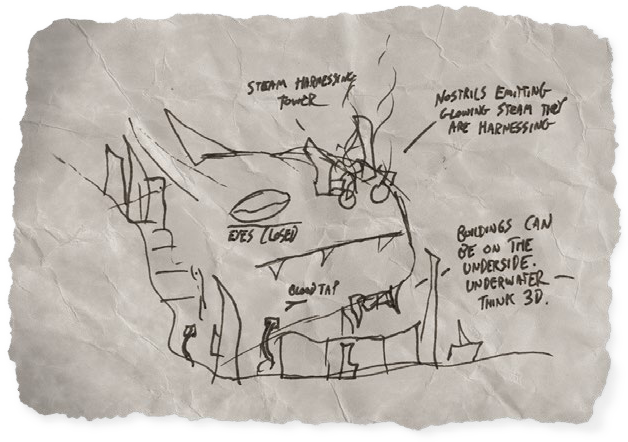 STEAM HARNESSING
TOWER
NOSTRILS EMITTING
GLOWING STEAM THEY
ARE HARNESSING
EYES CLOSED
BLOOD TAP
BUILDINGS CAN
BE ON THE
UNDERSIDE.
UNDERWATER —
THINK 3D.